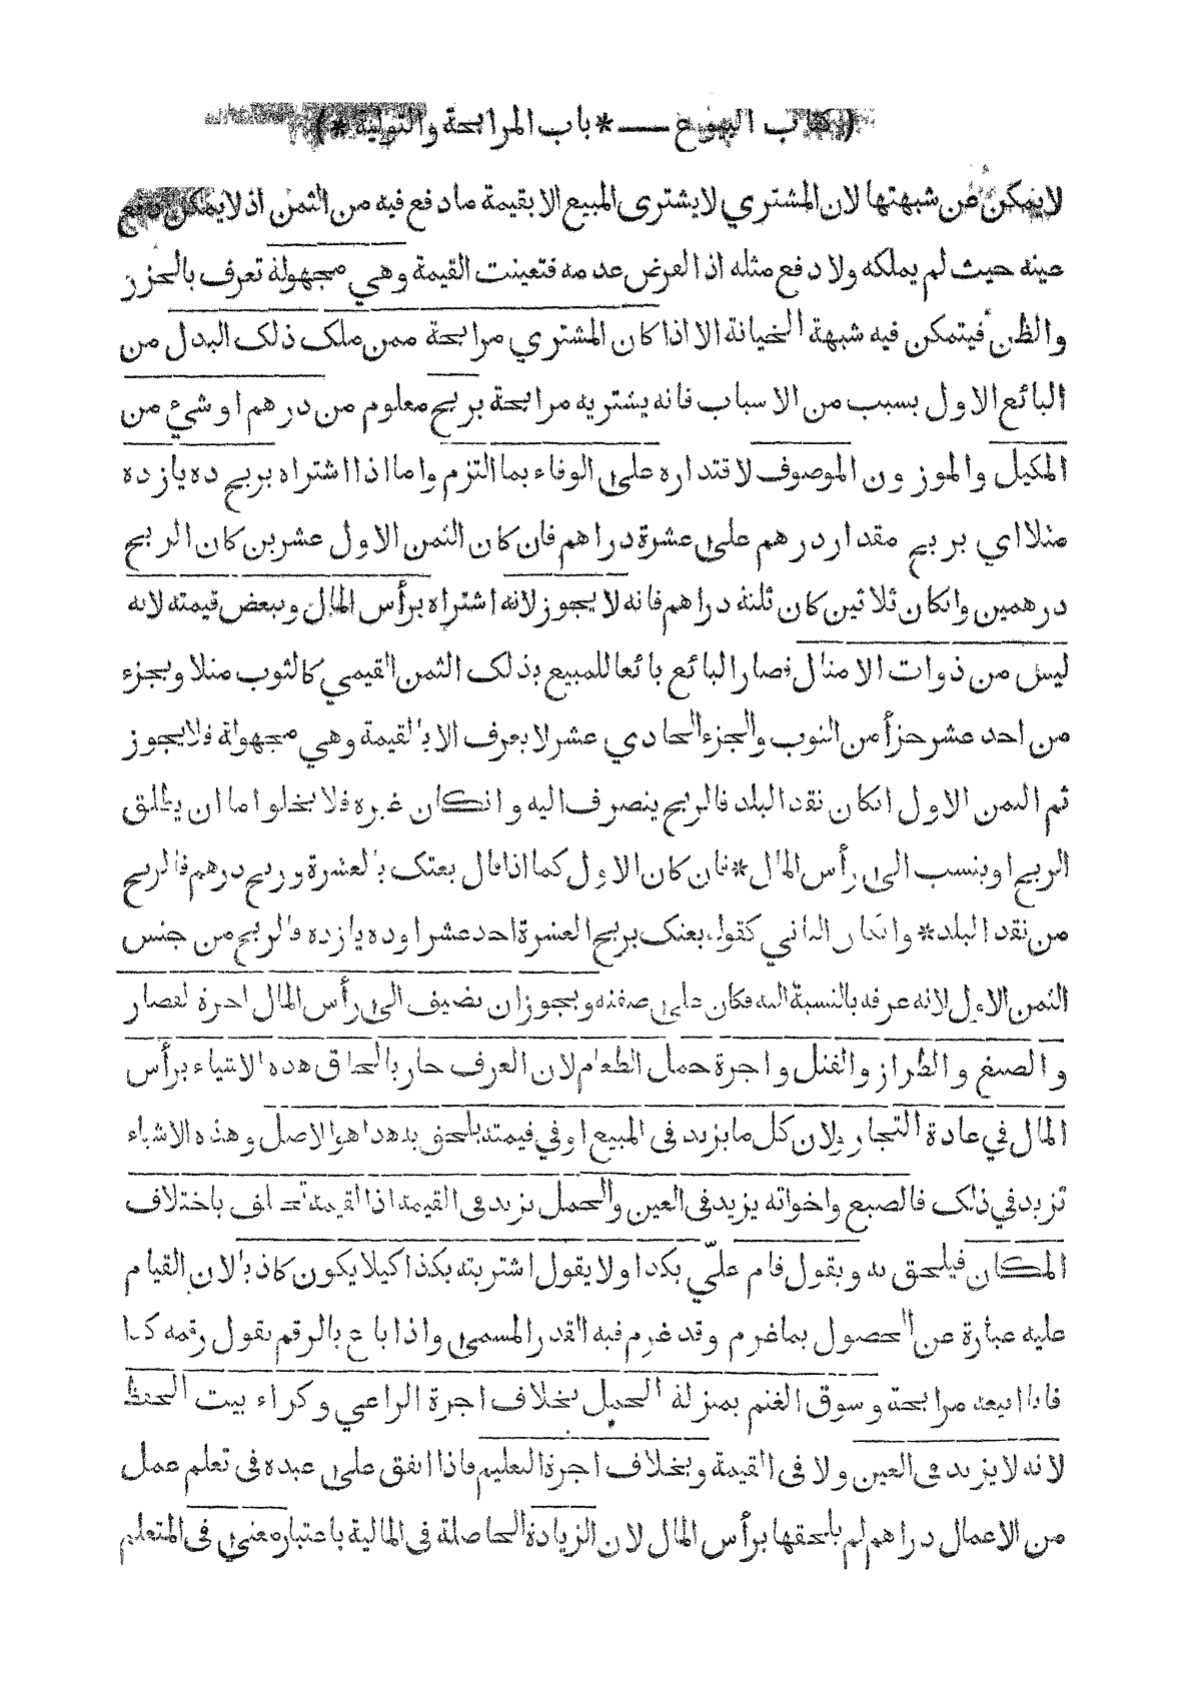 ( كتاب البيوع — * باب المرابحة والتولية * )
لايمكن عن شبهتها لان المشتري لايشترى المبيع الا بقيمة ما دفع فيه من الثمن اذ لايمكن دفع
عينه حيث لم يملكه ولا دفع مثله اذ الفرض عدمه فتعينت القيمة وهي مجهولة تعرف بالحزر
والظن فيتمكن فيه شبهة الخيانة الا اذا كان المشتري مرابحة ممن ملك ذلك البدل من
البائع الاول بسبب من الاسباب فانه يشتريه مرابحة بربح معلوم من درهم او شيء من
المكيل والموزون الموصوف لاقتداره على الوفاء بما التزم واما اذا اشتراه بربح ده يازده
مثلا اي بربح مقدار درهم على عشرة دراهم فان كان الثمن الاول عشرين كان الربح
درهمين وانكان ثلاثين كان ثلثة دراهم فانه لا يجوز لانه اشتراه برأس المال وببعض قيمته لانه
ليس من ذوات الامثال فصار البائع بائعا للمبيع بذلك الثمن القيمي كالثوب مثلا وبجزء
من احد عشر جزأ من الثوب والجزء الحادي عشر لا يعرف الا بالقيمة وهي مجهولة فلايجوز
ثم الثمن الاول انكان نقد البلد فالربح ينصرف اليه وانكان غيره فلا يخلوا اما ان يطلق
الربح او ينسب الى رأس المال * فان كان الاول كما اذا قال بعتك بالعشرة وربح درهم فالربح
من نقد البلد * وانكان الثاني كقوله بعتك بربح العشرة احد عشر او ده يازده فالربح من جنس
الثمن الاول لانه عرفه بالنسبة اليه فكان على صفته ويجوز ان يضيف الى رأس المال اجرة القصار
والصبغ والطراز والفتل واجرة حمل الطعام لان العرف جار بالحاق هذه الاشياء برأس
المال في عادة التجار ولان كل ما يزيد فى المبيع او في قيمته يلحق به هذا هوالاصل وهذه الاشياء
تزيد في ذلك فالصبغ واخواته يزيد فى العين والحمل يزيد فى القيمة اذ القيمة تختلف باختلاف
المكان فيلحق به ويقول قام علىّ بكذا ولا يقول اشتريته بكذا كيلا يكون كاذبا لان القيام
عليه عبارة عن الحصول بما غرم وقد غرم فيه القدر المسمى واذا باع بالرقم يقول رقمه كذا
فانا ابيعه مرابحة وسوق الغنم بمنزلة الحمل بخلاف اجرة الراعي وكراء بيت الحفظ
لانه لا يزيد فى العين ولا فى القيمة وبخلاف اجرة التعليم فاذا انفق على عبده فى تعلم عمل
من الاعمال دراهم لم يلحقها برأس المال لان الزيادة الحاصلة فى المالية باعتباره معنى فى المتعلم